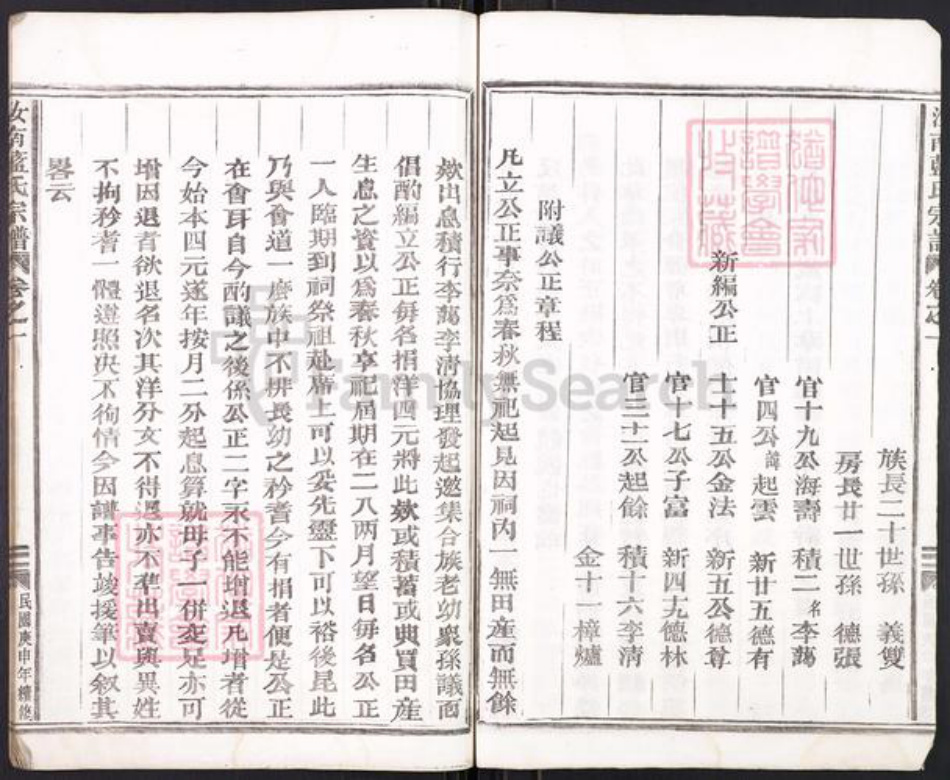 族長二十世孫 義雙
房長廿一世孫 德張
官十九公海壽積二名李蔼
官四公諱起雲 新廿五德有
新編公正 十十五公金法 新五公德尊
官十七公子富 新四九德林
官三十一公起餘 積十六李清
金十一樟爐
附議公正章程
凡立公正事奈爲春秋無祀起見因祠內一無田產而無餘
欸出息積行李蔼李清協理發起邀集合族老幼衆孫議而
倡酌編立公正每名捐洋四元將此欸或積蓄或典買田產
生息之資以爲春秋享祀届期在二八兩月望日每名公正
一人臨期到祠祭祖赴席上可以妥先靈下可以裕後昆此
乃與會道一席族中不排長幼之矜耆今有捐者便是公正
在會耳自今酌議之後係公正二字永不能增退凡增者從
今始本四元遂年按月二分起息算就母子一併交足亦可
增因退者欲退名次其洋分文不得退亦不準出賣與異姓
不拘矜耆一體遵照决不徇情今因譜事告竣援筆以叙其
畧云
汝南藍氏宗譜 卷之一
民國庚申年續修
FamilySearch